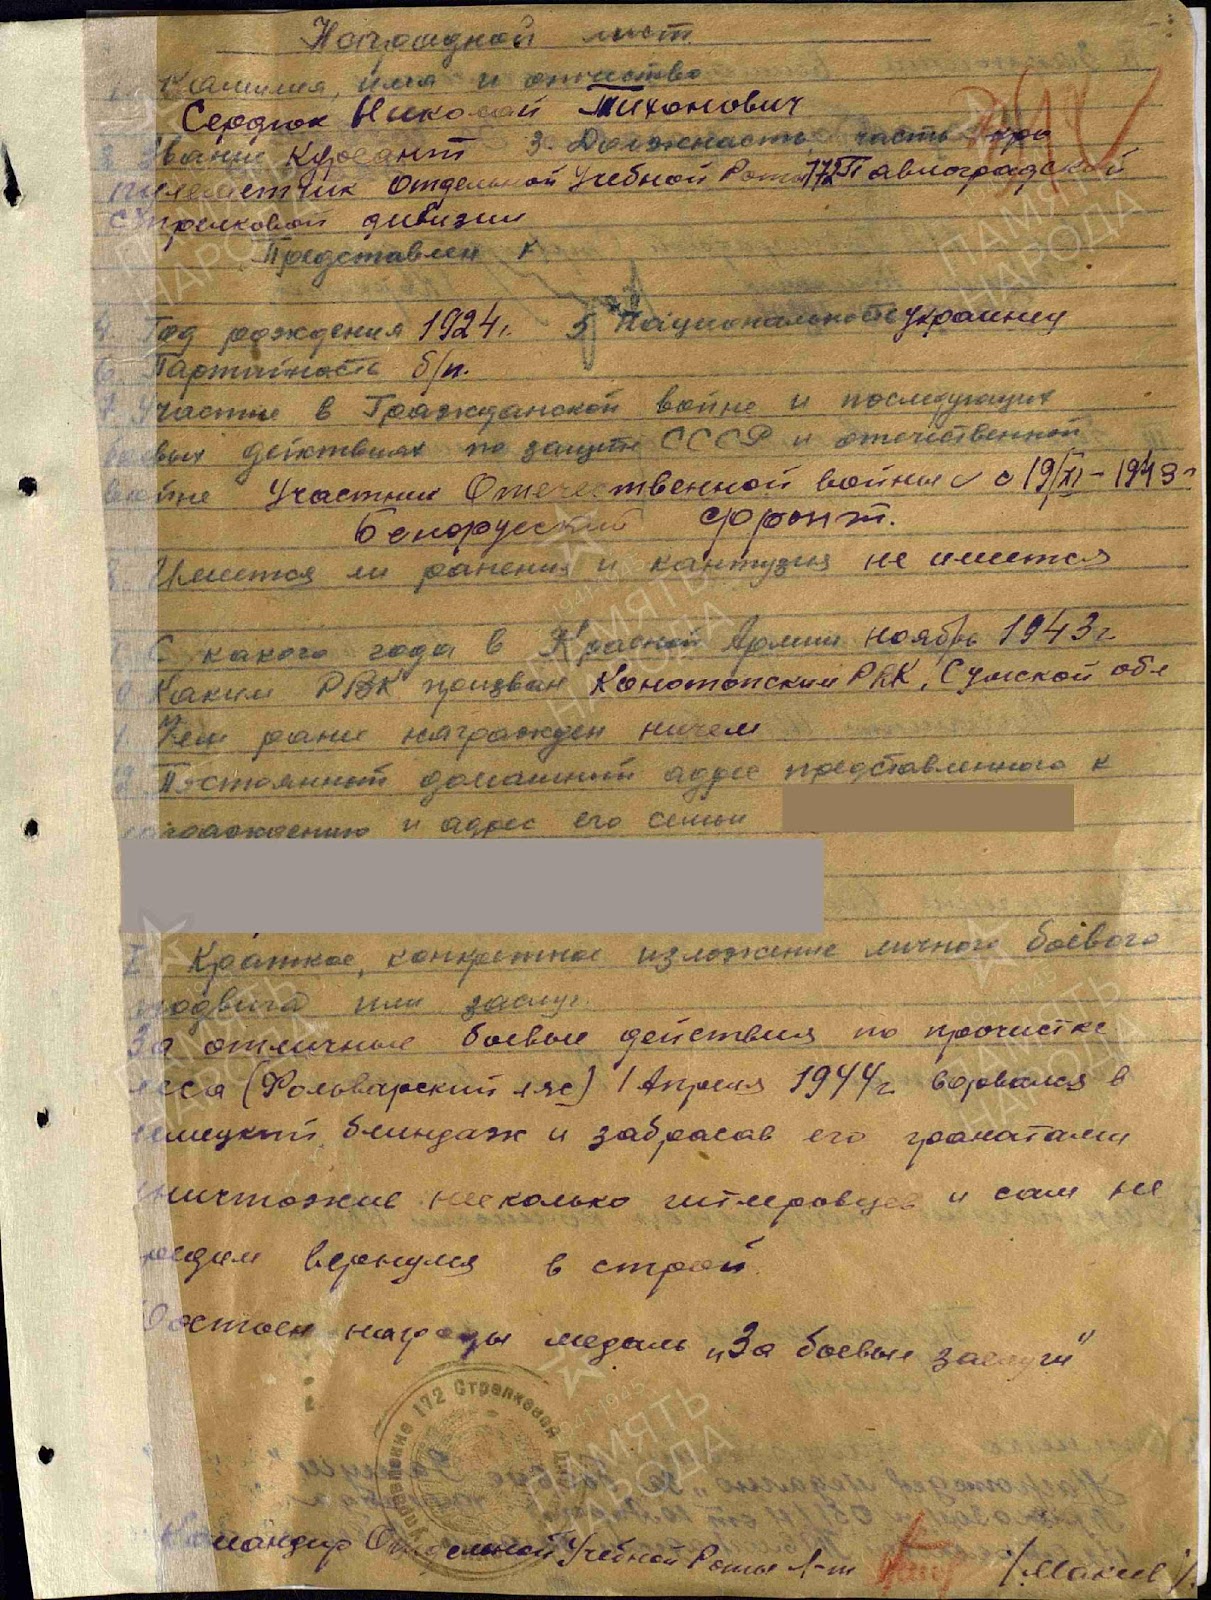 Наградной лист
1. Фамилия, имя и отчество
Сердюк Николай Тихонович
2. Звание Курсант 3. Должность часть про
пулеметчик Отдельной Учебной Роты 172 Павлоградской
стрелковой дивизии
Представлен к
4. Год рождения 1924г. 5 Национальность украинец
6. Партийность б/п.
7. Участие в Гражданской войне и последующих
боевых действиях по защите СССР и отечественной
войне Участник Отечественной войны с 19/XI-1943г
Белоруский фронт.
8. Имеется ли ранения и кантузия не имеется
С какого года в Красной Армии ноябрь 1943г
Каким РВК призван Конотопский РВК, Сумской обл
Чем ранее награжден ничем
12 Постоянный домашний адрес представленного к
награждению и адрес его семьи
I Краткое, конкретное изложение личного боевого
подвига или заслуг.
За отличные боевые действия по прочистке
леса (Фольварский лес) 1 Апреля 1944г ворвался в
немецкий блиндаж и забрасав его гранатами
уничтожив несколько гитлеровцев и сам не
вредим вернулся в строй.
Достоен награды медаль „За боевые заслуги"
Управление 172 Стрелковой
Командир Отдельной Учебной Роты л-т
ПАМЯТЬ НАРОДА
1941-1945